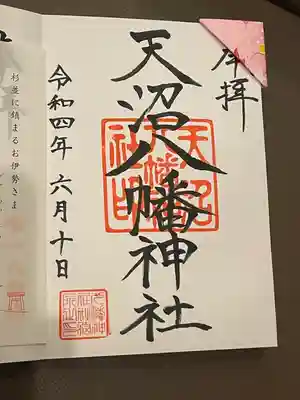 奉拝
天沼八幡神社
天沼八幡社印
令和四年六月十日
杉並に鎮まるお伊勢さま